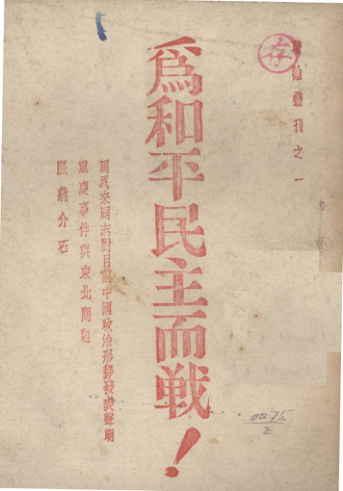 叢刊之一
存
為和平民主而戰！
周恩來同志對目前中國政治形勢發表聲明
重慶事件與東北問題
駁蔣介石
0075
2